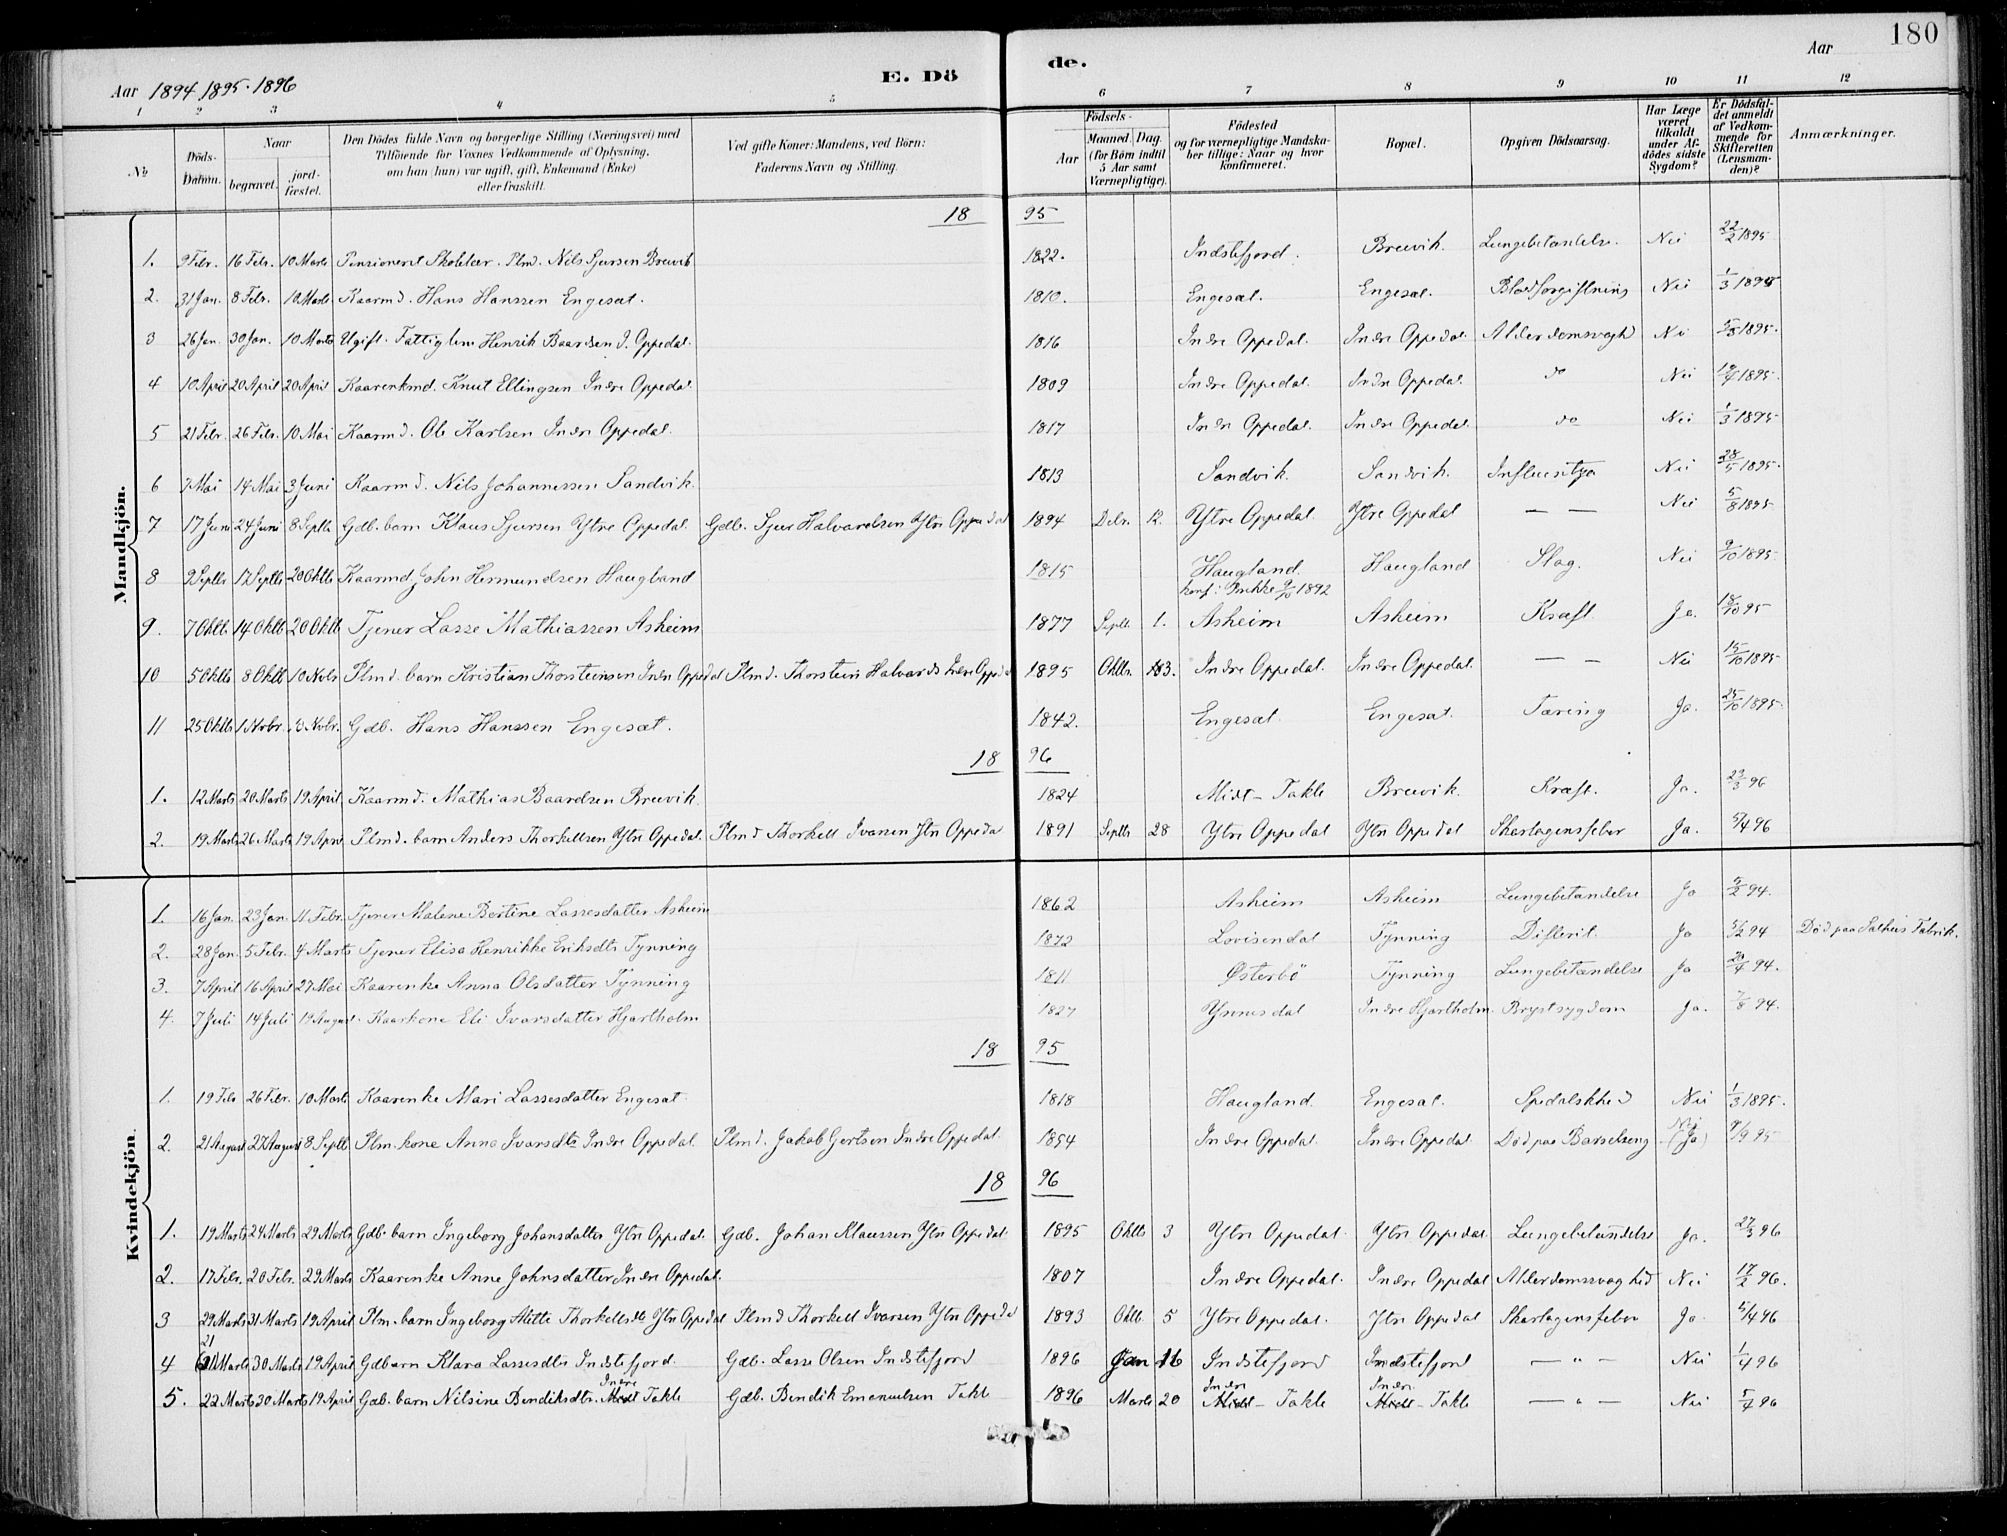 180
Aar 1894, 1895. 1896
E. Dö
de.
Aar
1 2 3 4 5 6 7 8 9 10 11 12
No
Döds-Datum.
Naar
begravet. jord-fæstet.
Den Dödes fulde Navn og borgerlige Stilling (Næringsvei) med
Tilföiende for Voxnes Vedkommende af Oplysning,
om han (hun) var ugift, gift, Enkemand (Enke)
eller fraskilt.
Ved gifte Koner: Mandens, ved Börn:
Faderens Navn og Stilling.
Födsels-
Aar Maaned. Dag.
(for Börn indtil
5 Aar samt
Værnepligtige).
Födested
og for værnepligtige Mandska-
ber tillige: Naar og hvor
konfirmeret.
Bopæl.
Opgiven Dödsaarsag.
Har Læge
været
tilkaldt
under Af-
dödes sidste
Sygdom?
Er Dödsfal-
det anmeldt
af Vedkom-
mende for
Skifteretten
(Lensman-
den)?
Anmærkninger.
Mandkjön.
18 95
1. 9 Febr. 16 Febr. 10 Marts Pensioneret Skolelær. Plmd. Nils Sjursen Breivik 1822. Indstefjord. Breivik. Lungebetændelse. Nei 22/2 1895
2. 31 Jan. 8 Febr. 10 Marts Kaarmd. Hans Hanssen Engesæt. 1810. Engesæt. Engesæt. Blodforgiftning Nei 1/3 1895
3 26 Jan. 30 Jan. 10 Marts Ugift. Fattiglem Henrik Baardsen I. Oppedal. 1816 Indre Oppedal. Indre Oppedal. Alderdomssvagh Nei 5/3 1895.
4 10 April 20 April 20 April Kaarenkmd. Knut Ellingsen Indre Oppedal. 1809 Indre Oppedal. Indre Oppedal. do Nei 1895.
5 21 Febr. 26 Febr. 10 Mai Kaarmd. Ole Karlsen Indre Oppedal. 1817 Indre Oppedal. Indre Oppedal. do Nei 1/3 1895
6 7 Mai 14 Mai 3 Juni Kaarmd. Nils Johannessen Sandvik. 1813 Sandvik. Sandvik. Influentza Nei 28/5 1895.
7 17 Juni 24 Juni 8 Septb Gdb. barn Klaus Sjursen Ytre Oppedal. Gdb. Sjur Halvardsen Ytre Oppedal 1894 Debr. 12. Ytre Oppedal. Ytre Oppedal — — Nei 5/8 1895.
8 9 Septb 17 Septb 20 Oktb Kaarmd John Hermundsen Haugland 1815 Haugland Haugland Slag. Nei 9/10 1895.
konf: Brekke 9/10 1892
9. 7 Oktb 14 Oktb 20 Oktb Tjener Lasse Mathiassen Asheim 1877 Septb. 1. Asheim Asheim Kræft. Ja. 18/10 95
10 5 Oktb 8 Oktb 10 Novbr Plmd. barn Kristian Thorsteinsen Indre Oppedal Plmd. Thorstein Halvards Indre Oppedal 1895 Oktbr. 3. Indre Oppedal. Indre Oppedal. — — Nei 15/10 1895
11 25 Oktb 1 Novbr. Novbr. Gdb. Hans Hanssen Engesæt. 1842. Engesæt. Engesæt. Tæring Ja. 25/10 1895.
18 96
1. 12 Marts 20 Marts 19 April Kaarmd. Mathias Baardsen Breivik. 1824 Midt-Takle Breivik. Kræft. Ja. 96
2. 19 Marts 26 Marts 19 April Plmd. barn Anders Thorkellsen Ytre Oppedal. Plmd Thorkell Ivarsen Ytre Oppedal 1891 Septb 28 Ytre Oppedal Ytre Oppedal Skarlagensfeber Ja. 5/4 96
Kvindekjön.
1. 16 Jan. 23 Jan. 11 Febr. Tjener Malene Bertine Lassesdatter Asheim 1862 Asheim Asheim Lungebetændelse Ja 94.
2. 28 Jan. 5 Febr. 4 Marts Tjener Elisa Henrikke Eriksdtr Tynning 1872 Lovisendal Tynning Difterit. Ja 5/2 94 Död paa Salhus Fabrik.
3. 7 April 16 April 27 Mai Kaarenke Anna Olsdatter Tynning 1811 Østerbö Tynning Lungebetændelse Ja 20/4 94.
4. 7 Juli 14 Juli 19 August. Kaarkone Eli Ivarsdatter Hjartholm 1827 Ynnesdal Indre Hjartholm. Brystsygdom Ja. 7/8 94.
18 95
1. 19 Febr 26 Febr. 10 Marts Kaarenke Mari Lassesdatter Engesæt. 1818 Haugland. Engesæt. Spedalskhed Nei 1/3 1895.
2. 21 August 27 August 8 Septb Plm. kone Anna Ivarsdtr Indre Oppedal. Plmd. Jakob Gertsen Indre Oppedal. 1854 Indre Oppedal Indre Oppedal Död paa Barselseng Nei (Ja) 9/9 95
18 96
1. 19 Marts 24 Marts 29 Marts Gdb. barn Ingeborg Johansdatter Ytre Oppedal. Gdb. Johan Klaussen Ytre Oppedal. 1895 Oktb 3 Ytre Oppedal. Ytre Oppedal. Lungebetændelse Ja. 27/3 96
2. 17 Febr. 20 Febr. 29 Marts Kaarenke Anne Johnsdatter Indre Oppedal. 1807 Indre Oppedal. Indre Oppedal Alderdomssvaghed Nei 17/2 96.
3 29 Marts 31 Marts 19 April Plm. barn Ingeborg Mitte Thorkellsdtr Ytre Oppedal Plmd Thorkell Ivarsen Ytre Oppedal 1893 Oktb. 5 Ytre Oppedal. Ytre Oppedal Skarlagensfeber Ja. 5/4 96
4 21 Marts 30 Marts 19 April Gdbarn Klara Lassesdtr Indstefjord. Gdb. Lasse Olsen Indstefjord 1896 Jan 16 Indstefjord Indstefjord — " — Nei 1/4 96
5. 22 Marts 30 Marts 19 April Gdb. barn Nilsine Bendiksdtr. Indre Midt Takle Gdb. Bendik Emanuelsen Takle 1896 Marts 20 Indre Midt-Takle Indre Midt-Takle — " — Nei 5/4 96